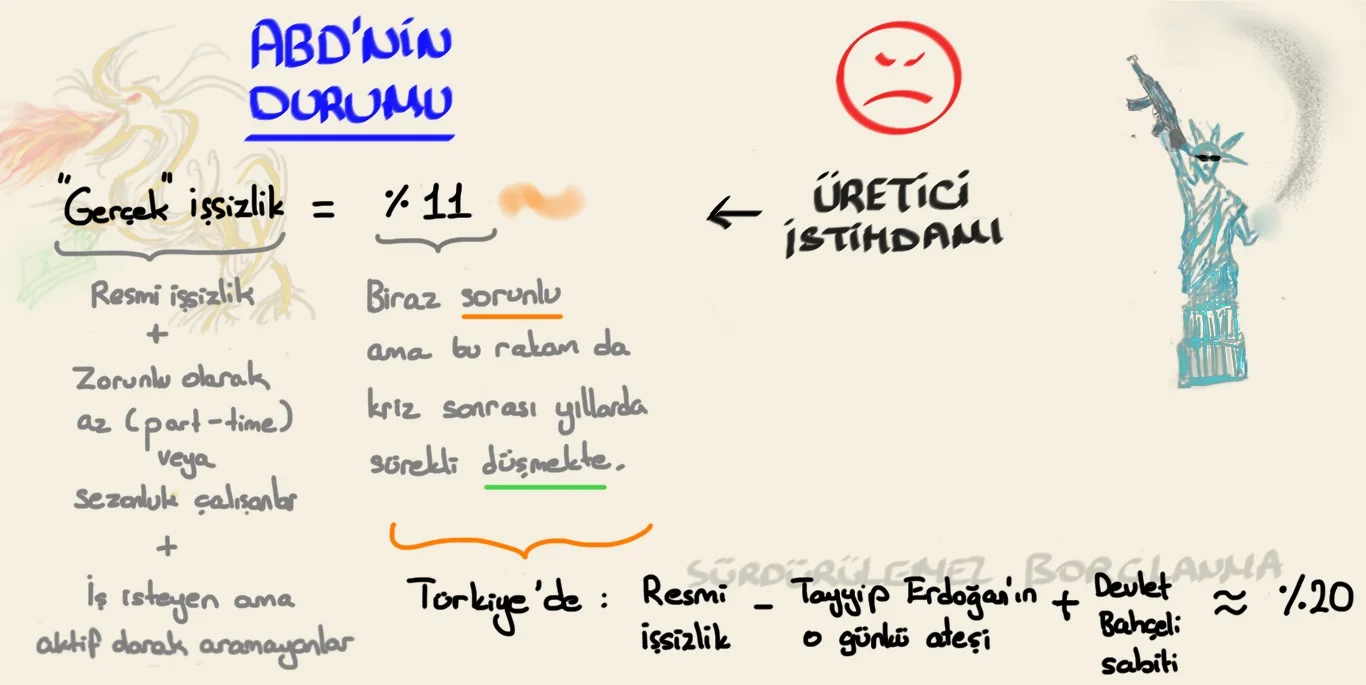 ABD'NİN
DURUMU
"Gerçek" işsizlik = % 11
← ÜRETİCİ
İSTİHDAMI
Resmi işsizlik
+
Zorunlu olarak
az (part-time)
veya
sezonluk çalışanlar
+
İş isteyen ama
aktif olarak aramayanlar
Biraz sorunlu
ama bu rakam da
kriz sonrası yıllarda
sürekli düşmekte.
SÜRDÜRÜLEMEZ BORÇLANMA
Türkiye'de : Resmi işsizlik - Tayyip Erdoğan'ın o günkü ateşi + Devlet Bahçeli sabiti ≈ %20